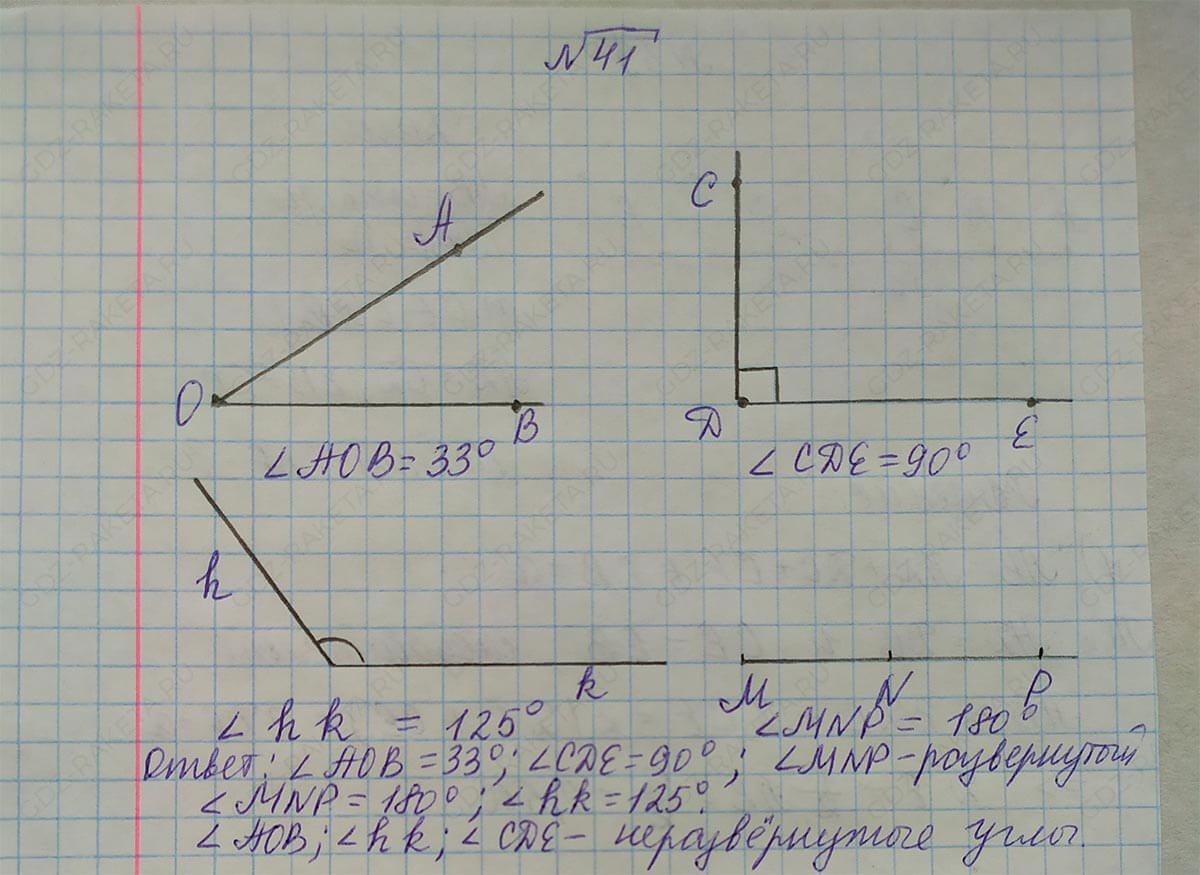 №41
A
C
O
B
D
E
∠AOB = 33°
∠CDE = 90°
h
k
M N P
∠hk = 125°
∠MNP = 180°
Ответ: ∠AOB = 33°; ∠CDE = 90°; ∠MNP - развернутый
∠MNP = 180°; ∠hk = 125°.
∠AOB; ∠hk; ∠CDE - неразвёрнутые углы.
GDZ-RAKETA.RU